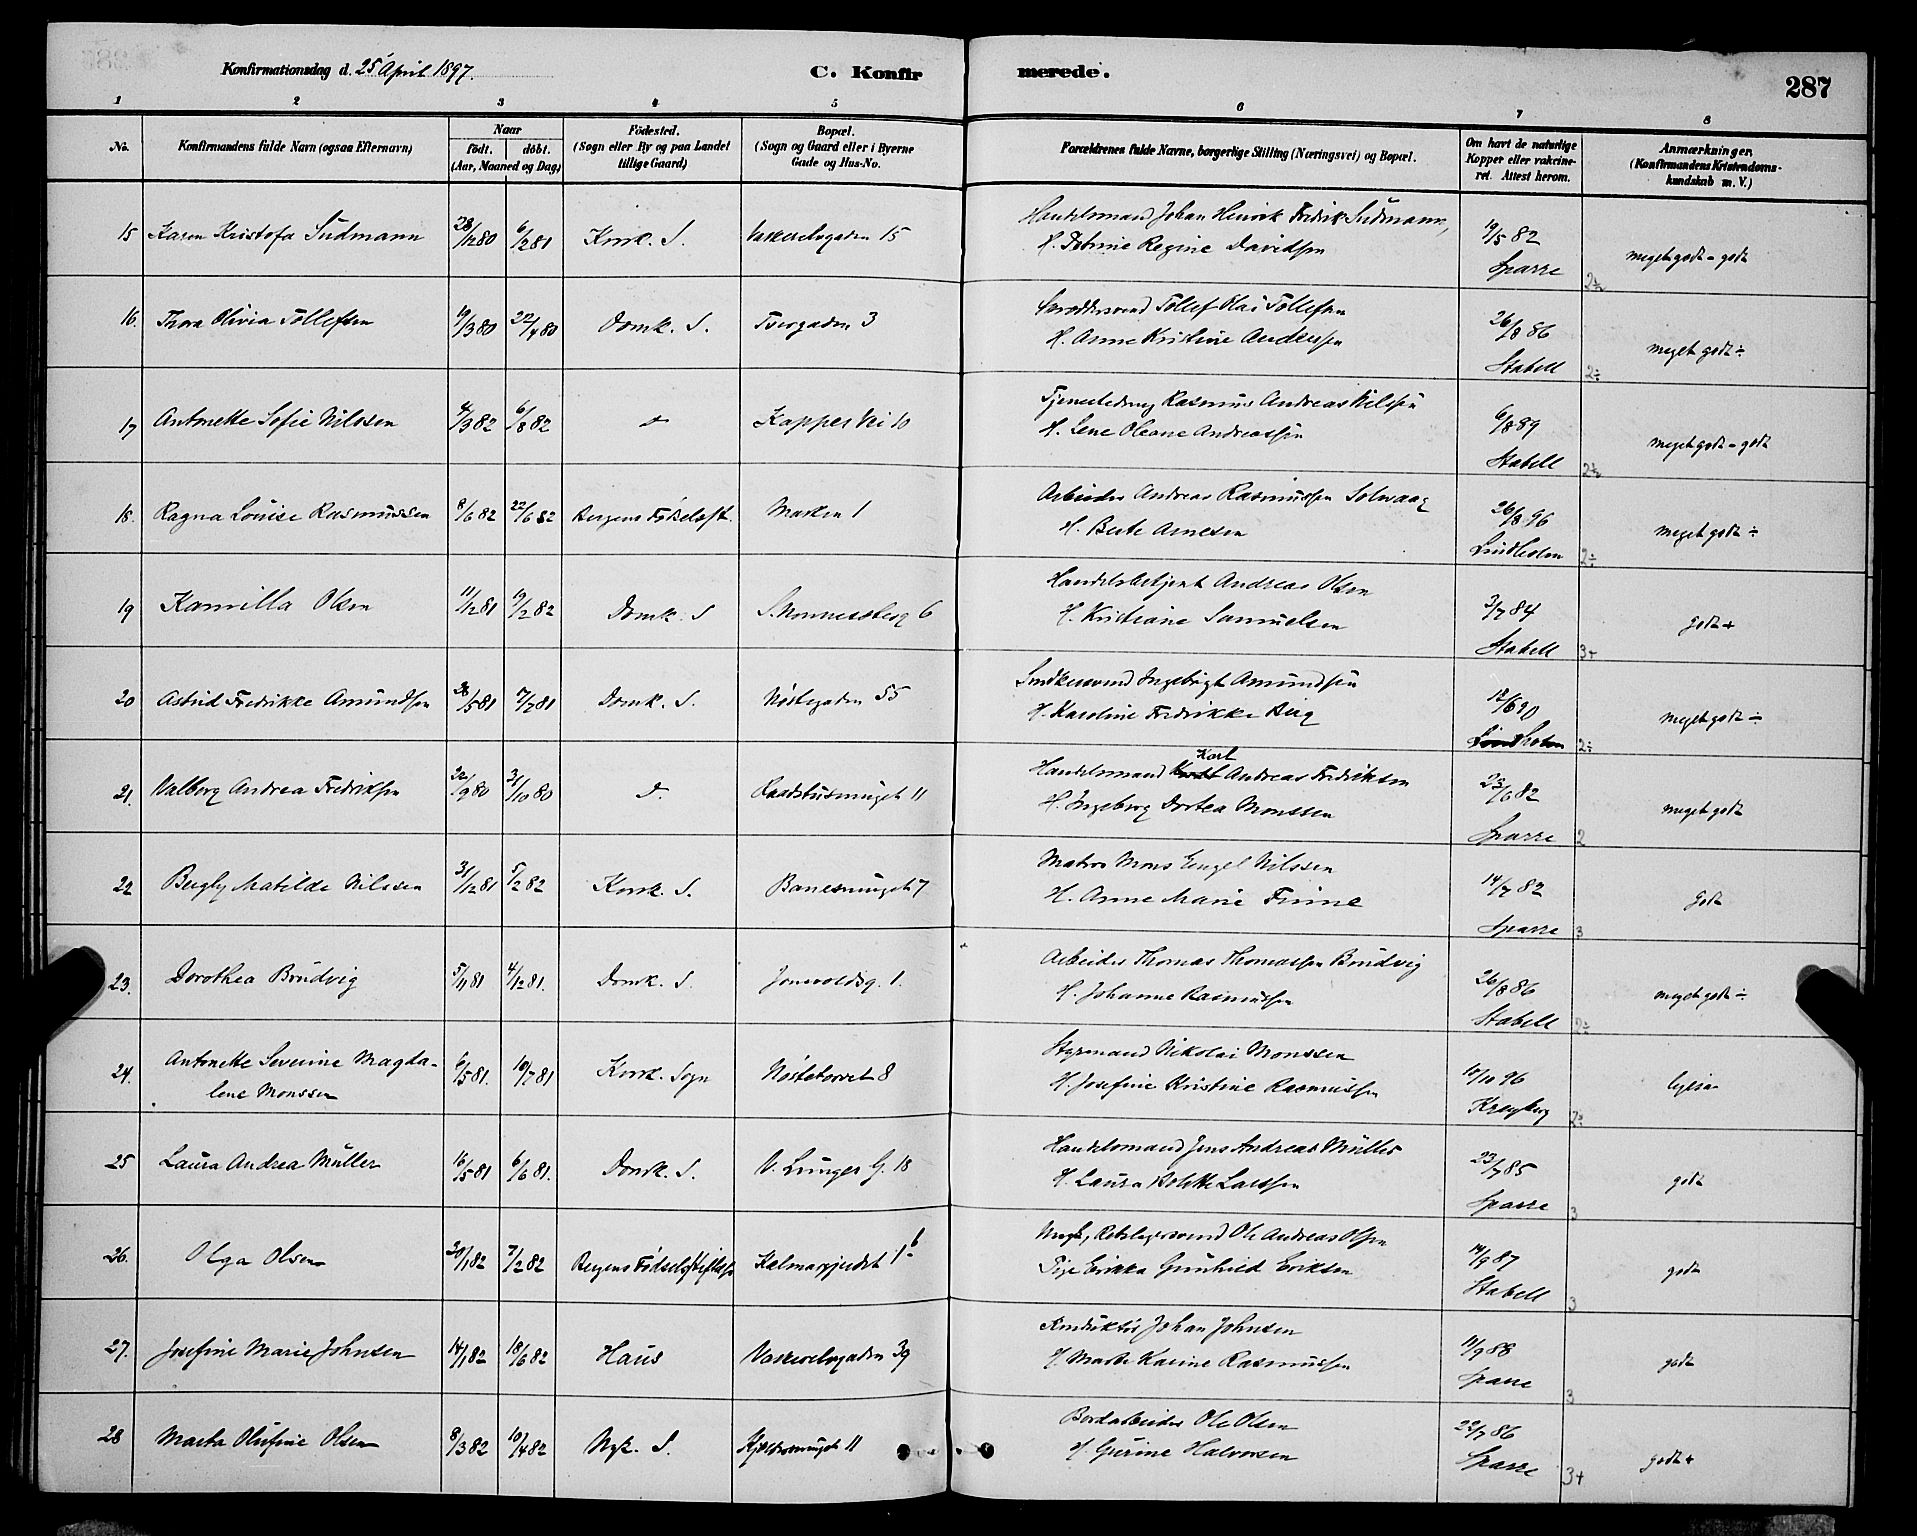 Konfirmationsdag d. 25 April 1897.
C. Konfirmerede.
287
1 2 3 4 5 6 7 8
No.
Konfirmandens fulde Navn (ogsaa Efternavn)
Naar
født. døbt.
(Aar, Maaned og Dag)
Födested.
(Sogn eller By og paa Landet tillige Gaard)
Bopæl.
(Sogn og Gaard eller i Byerne Gade og Hus-No.
Forældrenes fulde Navne, borgerlige Stilling (Næringsvei) og Bopæl.
Om havt de naturlige Kopper eller vakcineret. Attest herom.
Anmærkninger.
(Konfirmandens Kristendomskundskab m. V.)
15 Karen Kristofa Sudmann 28/12 80 6/2 81 Kork. S. Vaskerelvgaden 15
Handelsmand Johan Henrik Fredrik Sudmann,
H. Petrine Regine Davidsen
19/5 82
Sparre
meget godt - godt
16. Thora Olivia Tollefsen 19/3 80 22/4 80 Domk. S. Tvergaden 3
Tollef Olai Tollefsen
H. Anne Kristine Andersen
26/8 86
Stabell 2÷
meget godt ÷
17 Antonette Sofie Nilssen 4/3 82 6/8 82 Kapper Vei 10
Rasmus Andreas Nilssen
H. Lene Oleane Andreassen
6/8 89
Stabell
meget godt - godt
18. Ragna Louise Rasmussen 8/6 82 22/6 82 Bergens Fødselsst. Marken 1
Arbeider Andreas Rasmussen Solvaag
H. Berte Arnesen
26/8 96
Lindholm 2÷
meget godt ÷
19 Kamilla Olsen 11/12 81 19/2 82 Domk. S
Handelsbetjent Andreas Olsen
H. Kristiane Samuelsen
3/7 84
Stabell 3+
godt +
20 Astrid Fredrikke Amundsen 28/5 81 7/7 81 Domk. S. Nöstegaden 55
Snedkersvend Ingebrigt Amundsen
H. Karoline Fredrikke Berg
12/6 90
2÷
meget godt ÷
21. Valborg Andrea Fredriksen 22/9 80 3/10 80 D. Raadstusmuget 11
Handelsmand Karl Andreas Fredriksen
H. Ingeborg Dortea Monssen
23/6 82
Sparre 2
meget godt
22 Bergly Matilde Nilssen 31/12 81 5/2 82 Kork. S. Banesmuget 7
Matros Mons Engel Nilssen
H. Anne Marie Finne
14/7 82
Sparre 3
godt
23. Dorothea Brudvig 5/11 81 4/12 81. Domk. S. Jonsvoldsg. 1.
Arbeider Thomas Thomassen Brudvig
H. Johanne Rasmussen
26/8 86
Stabell 2÷
meget godt ÷
24. Antonette Severine Magdalene Monssen 6/5 81. 10/7 81 Kork. Sogn Nöstetorvet 8
Styrmand Nikolai Monssen
H. Josefine Kristine Rasmussen
10/10 96
Kreyberg 2÷
25 Laura Andrea Müller 16/5 81 6/6 81. Domk. S. V. Lunger G. 18
Handelsmand Jens Andreas Müller
H. Laura Bolette Larssen
23/7 85
Sparre 3
godt
26. Olga Olsen 20/1 82 7/2 82 Bergens Fødselsstiftelse Kalmarjordet 1 b
Ugift, Rebslagersvend Ole Andreas Olsen
Pige Erikka Gunhild Eriksen
14/9 87
Stabell 3
godt
27. Josefine Marie Johnsen 14/1 82 18/6 82 Haus Vaskerelvgaden 39
Konduktör Johan Johnsen
H. Marte Karine Rasmussen
11/9 88
Sparre 3
godt
28 Marta Olufine Olsen 8/3 82 10/4 82 Nyk. S.
Bordarbeider Ole Olsen
H. Gurine Halvorsen
22/7 86
Sparre 3+
godt +